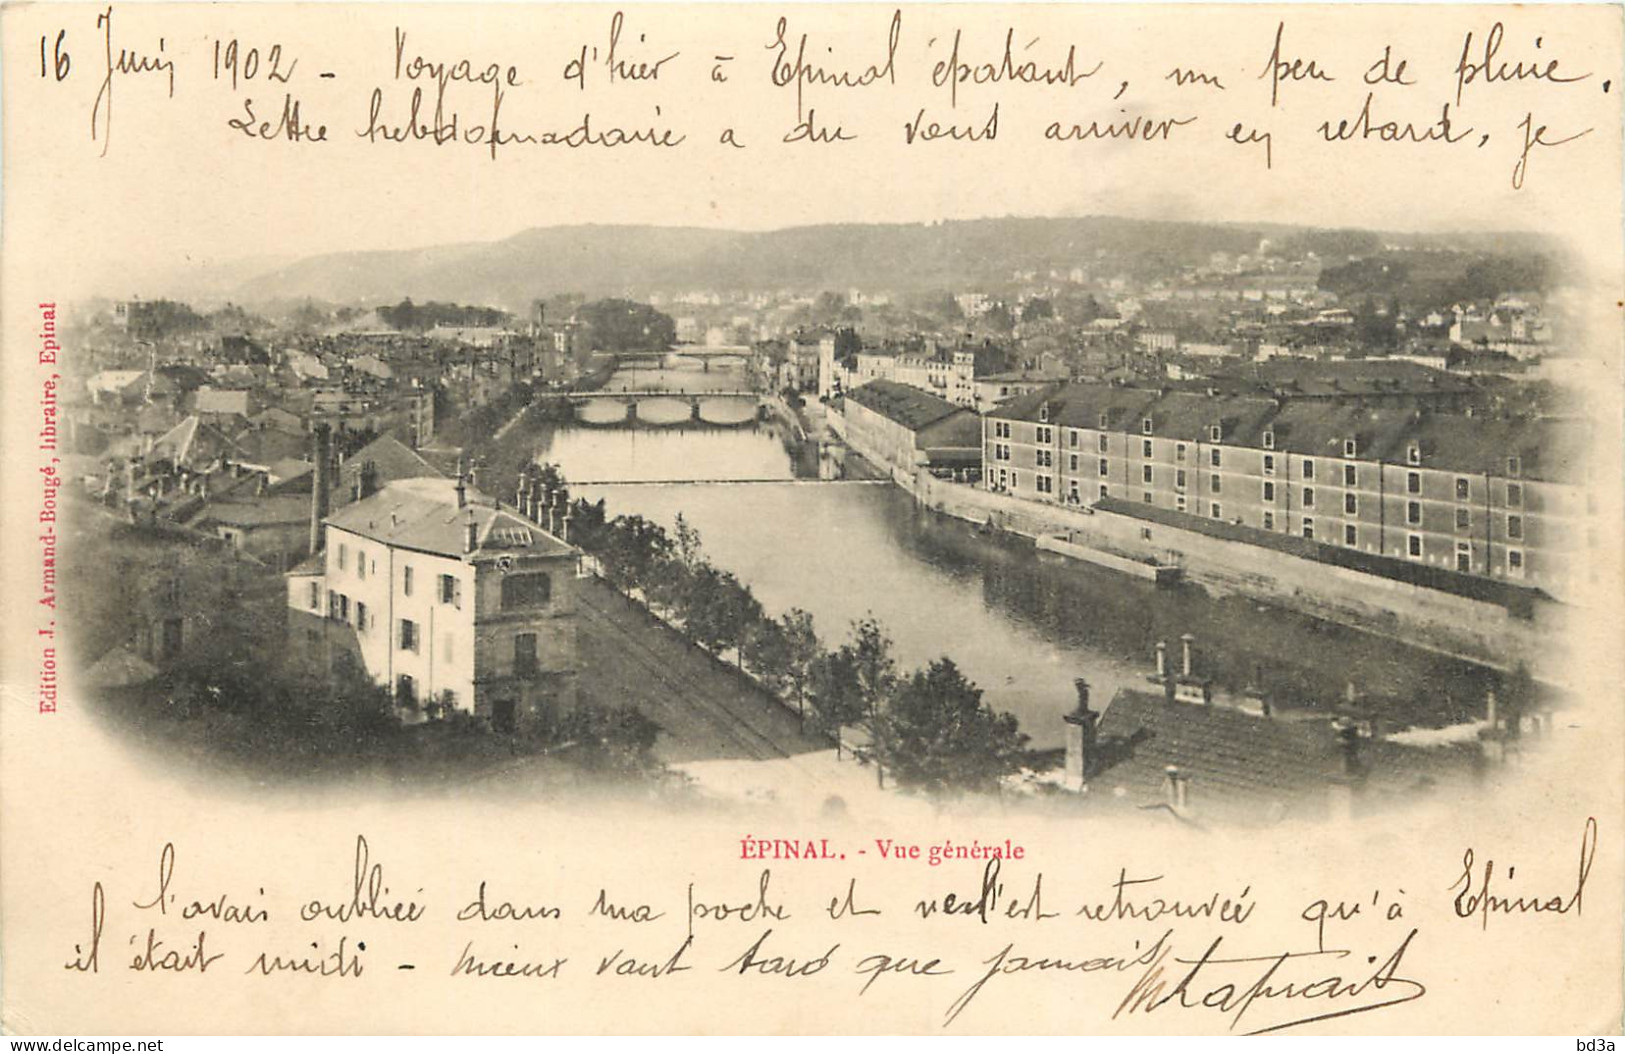 16 Juin 1902 - Voyage d'hier à Epinal épatant, un peu de pluie.
Lettre hebdomadaire a du vous arriver en retard, je
Edition J. Armand-Bougé, libraire, Epinal
ÉPINAL. - Vue générale
l'avais oubliée dans ma poche et l'est retrouvée qu'à Epinal
il était midi - Mieux vaut tard que jamais
www.delcampe.net
bd3a